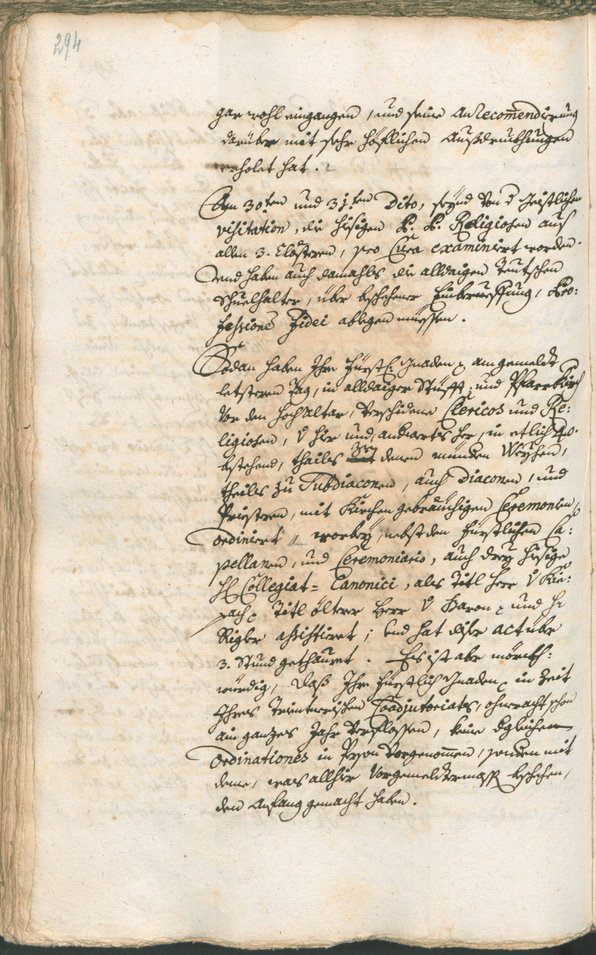 294
gar wohl eingangen, und seine anRecom̃endirung
darüber mit sehr höflichen Außdruckhungen
erholet hat.
Den 30ten und 31ten Dito, seynd von d Geistlichen
visitation, die hiesigen P. P. Religiosen auß
allen 3. Clöstern, pro Cura examiniert worden.
und haben auch damahls die alldaigen Teutschen
Schuelhalter, über beschehene Einberueffung, Pro:
fessionē Fidei ablegen müessen.
Sodan haben Ihro Fürstl: Gnaden am gemeldt
letsteren Tag, in alldaiger Stüfft: und Pfarrkürch
vor den Hochaltar, verschidene Clericos und Re:
ligiosen, v hier und anderwerts her, in etlich 40.
bestehend, theils zu denen mündern Weyhen,
theils zu Subdiaconen, auch Diaconen, und
Priestern, mit Kirchen gebräuchigen Ceremonien,
ordiniert, worbey nebst den Fürstlichen Ca:
pellanen, und Ceremoniario, auch drey hiesige
HH Collegiat= Canonici, als Titl Herr v
Titl öltere Herr v Baron und H:
assistieret; und hat diser act über
3. Stund gethauret. Es ist aber mörckh:
würdig, daß Ihro Fürstlich Gnaden in Zeit
Ihres Trienterischen Coadjutoriats, ohneracht schon
ain ganzes Jahr verflossen, keine dgleichen
Ordinationes in Person vorgenommen, sondern mit
deme, was allhier vorgemeldtermaß beschehen,
den Anfang gemacht haben.